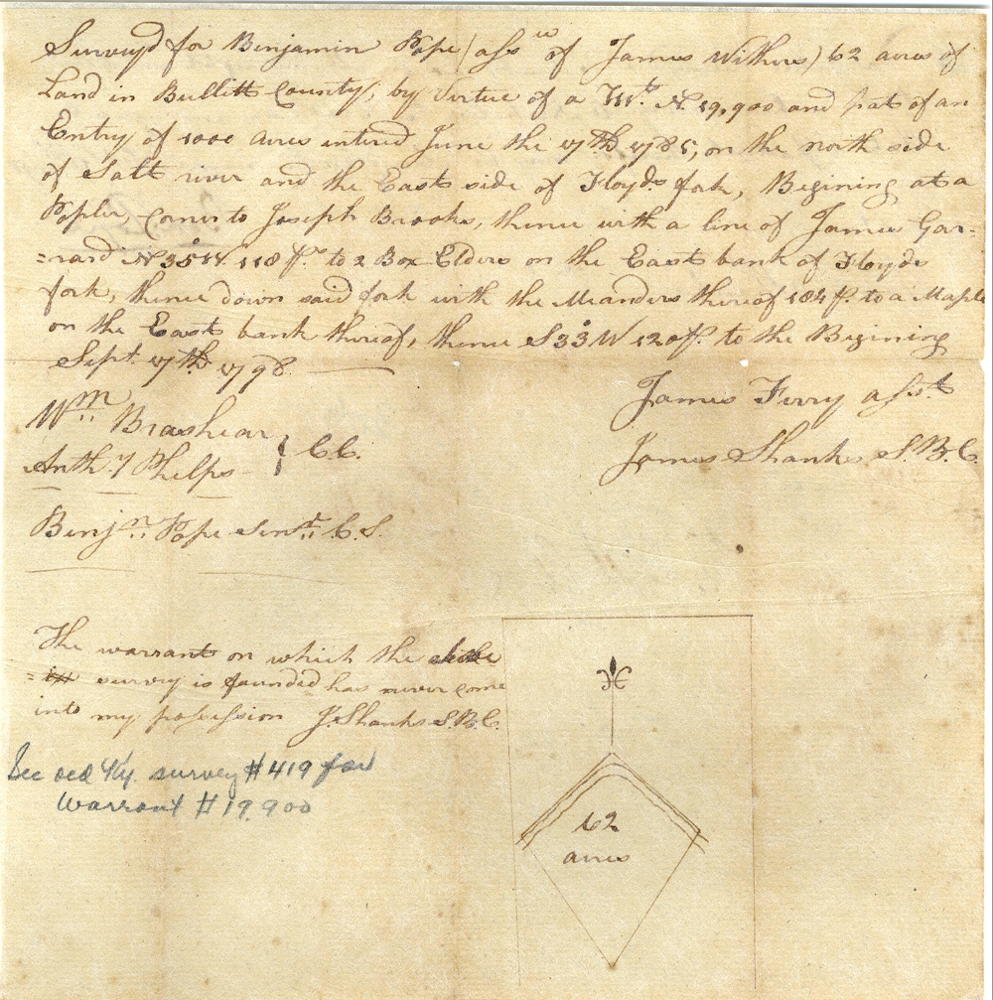 Survey'd for Benjamin Pope (assee of James Withers) 62 acres of
Land in Bullitt County, by Virtue of a Wt. N. 19,900 and part of an
Entry of 1000 acres entered June the 17th 1785, on the north side
of Salt river and the East side of Floyds fork, Begining at a
Popler, corner to Joseph Brooks, thence with a line of James Gar-
=rard N35W 118 ps. to 2 Box Elders on the East bank of Floyds
fork, thence down said fork with the Meanders thereof 184 p. to a Maple
on the East bank thereof, thence S33W 120 p. to the Begining
Sept. 17th 1798
James Ferry asst.
Wm Brashear
Anthy Phelps } C.C.
James Shanks S.B.C.
Benjn Pope Senr. C.S.
The warrant on which the above
= survey is founded has never come
into my possession J. Shanks S.B.C.
See old Ky. survey #419 for
Warrant #19,900
62
acres